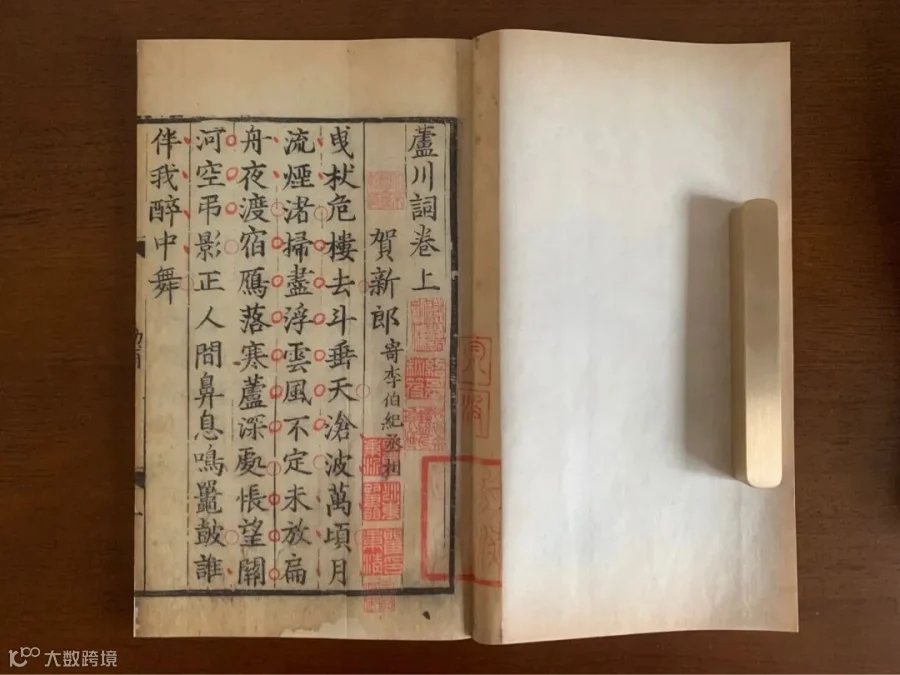 蘆川詞卷上
賀新郎 寄李伯紀丞相
曵杖危樓去斗垂天滄波萬頃月
流煙渚掃盡浮雲風不定未放扁
舟夜渡宿鴈落寒蘆深處悵望關
河空弔影正人間鼻息鳴鼉皷誰
伴我醉中舞
大数跨境